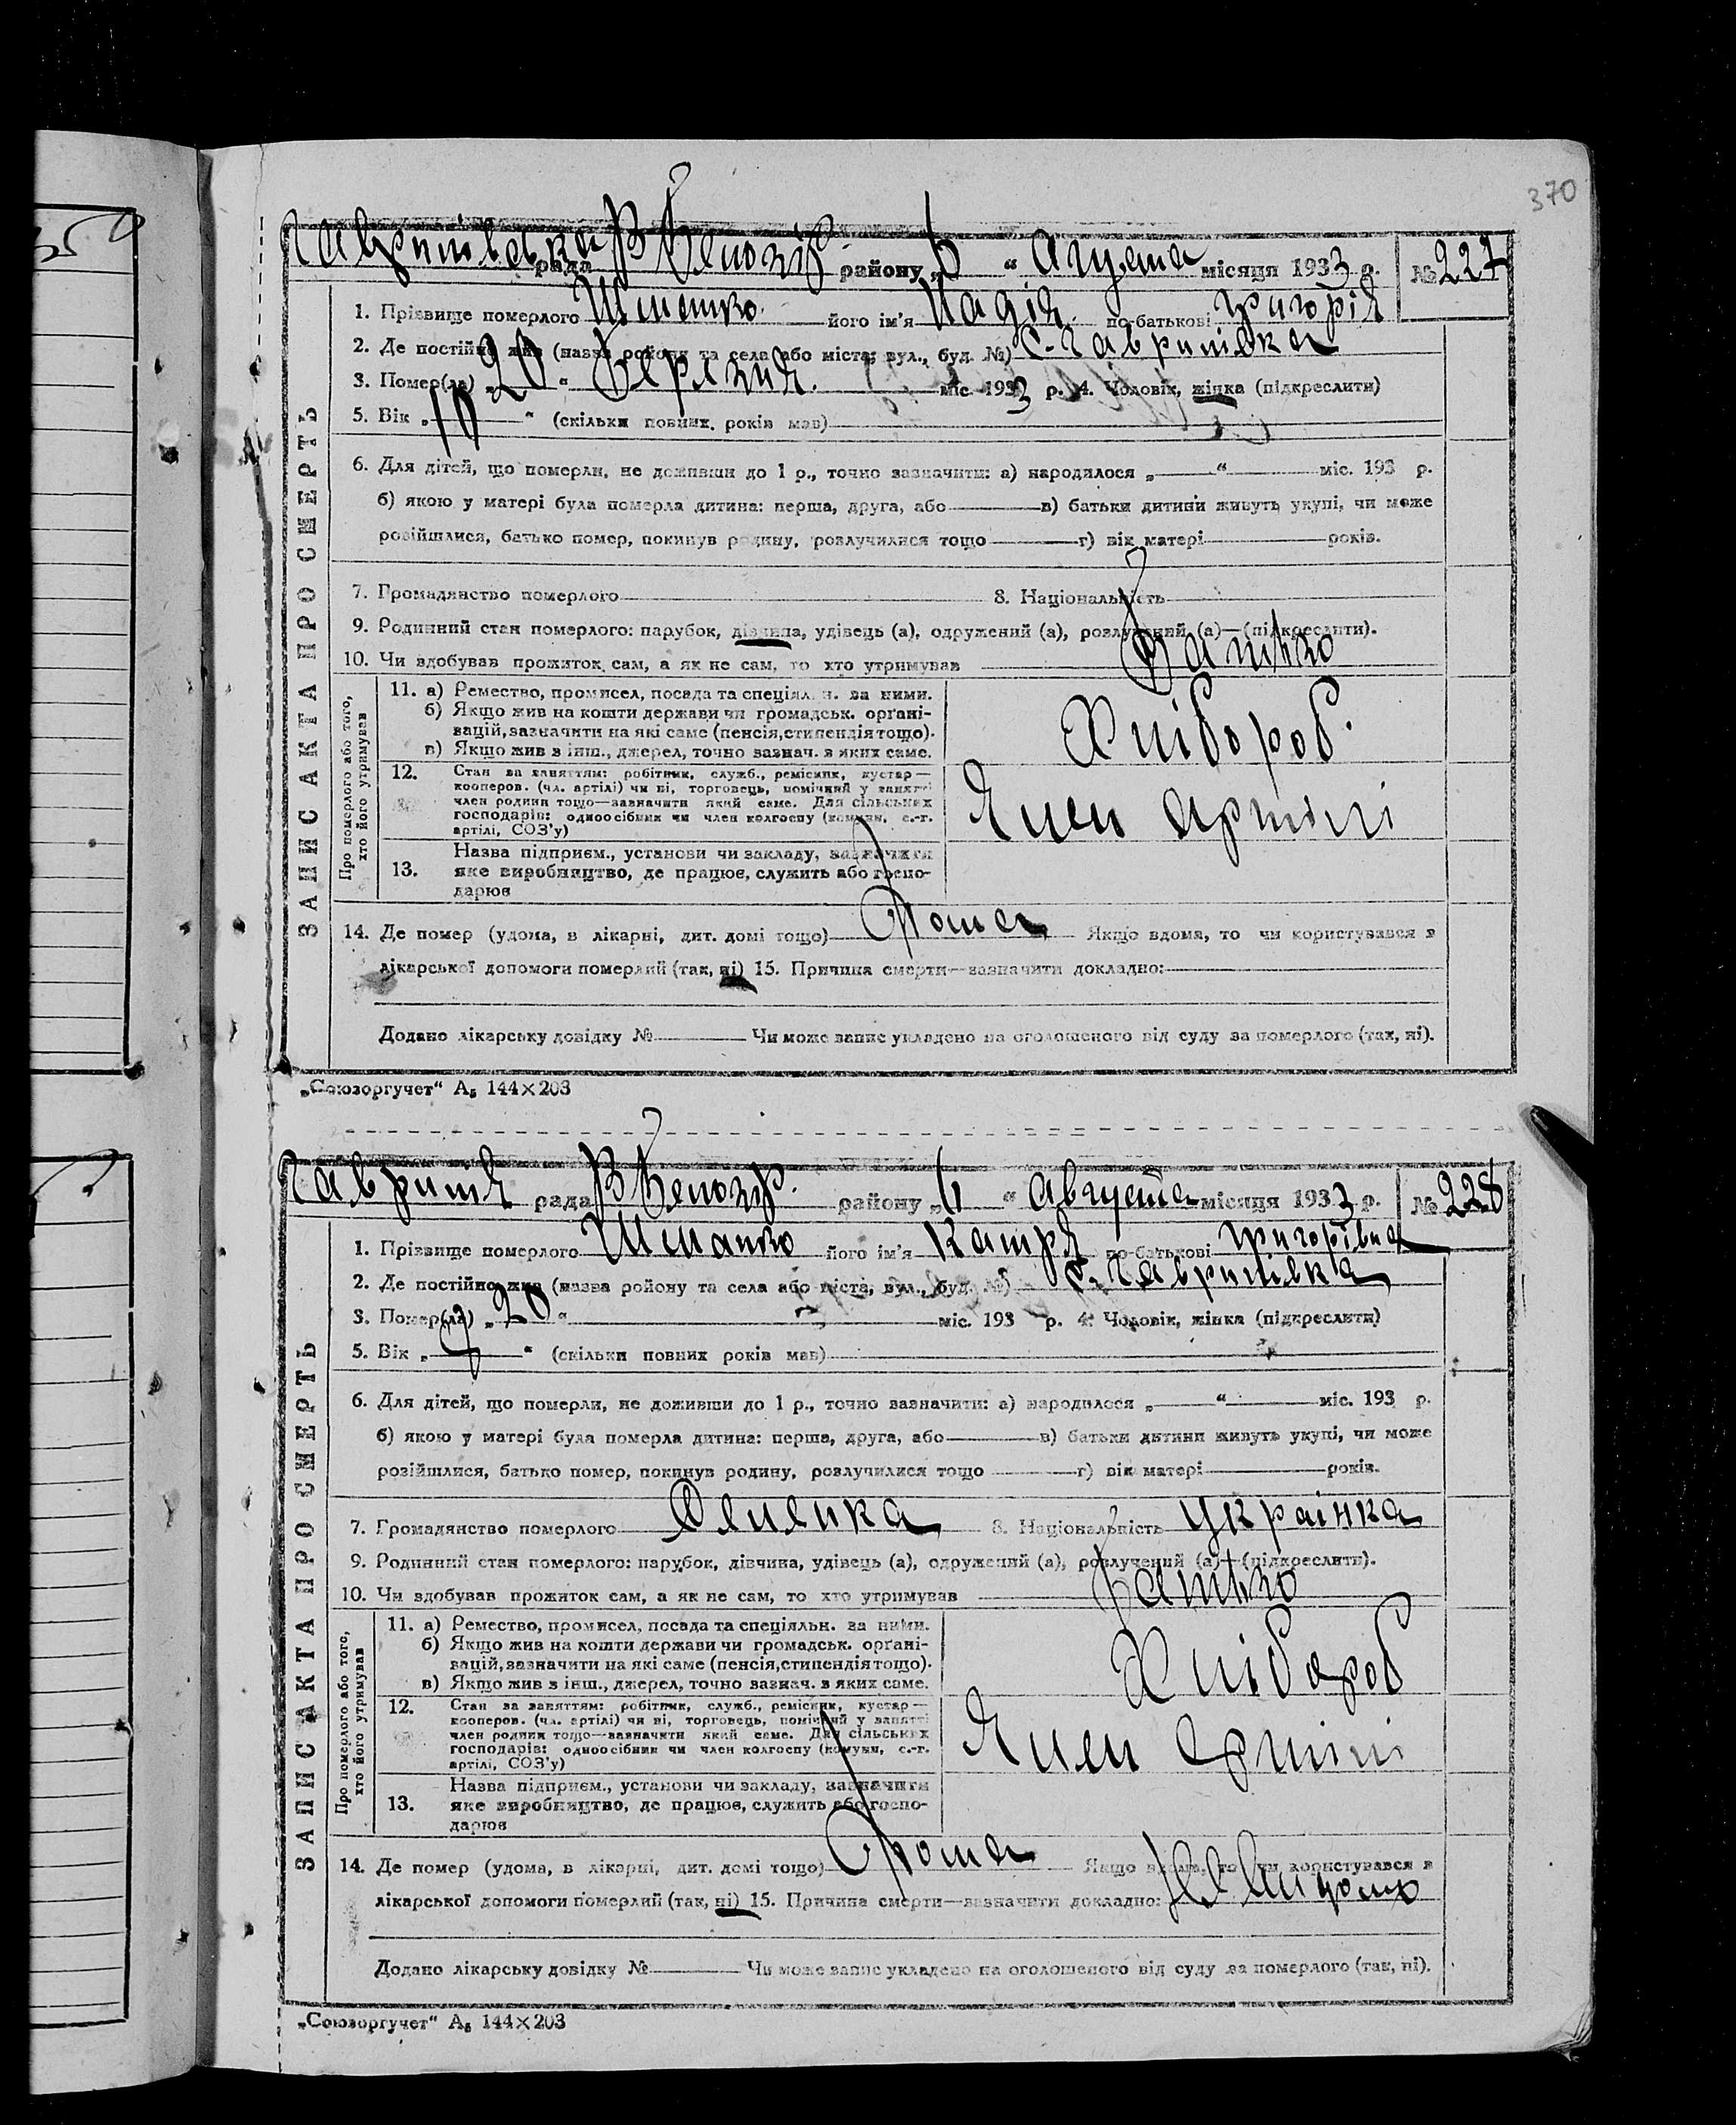 370
Гаврилівська рада В Білозір району „6“ Августа місяця 1933 р. № 227
ЗАПИС АКТА ПРО СМЕРТЬ
1. Прізвище померлого його ім'я Надія по-батькові Григорія
2. Де постійно жив (назва району та села або міста; вул., буд. №) с. Гаврилівка
3. Помер(ла) „20“ Березня міс. 1933 р. 4. Чоловік, жінка (підкреслити)
5. Вік „10“ (скільки повних років мав)
6. Для дітей, що померли, не доживши до 1 р., точно зазначити: а) народилося „ “ міс. 193 р.
б) якою у матері була померла дитина: перша, друга, або в) батьки дитини живуть укупі, чи може
розійшлися, батько помер, покинув родину, розлучилися тощо г) вік матері років.
7. Громадянство померлого 8. Національність
9. Родинний стан померлого: парубок, дівчина, удівець (а), одружений (а), розлучений (а)—(підкреслити).
10. Чи здобував прожиток сам, а як не сам, то хто утримував Батько
Про померлого або того, хто його утримував
11. а) Ремество, промисел, посада та спеціяльн. за ними.
б) Якщо жив на кошти держави чи громадськ. органі-
зацій, зазначити на які саме (пенсія, стипендія тощо).
в) Якщо жив з інш., джерел, точно зазнач. з яких саме.
Хлібороб.
12. Стан за заняттям: робітник, служб., ремісник, кустар—
кооперов. (чл. артілі) чи ні, торговець, помічний у занятті
член родини тощо—зазначити який саме. Для сільських
господарів: одноосібник чи член колгоспу (комуни, с.-г.
артілі, СОЗ'у)
Член артілі
13. Назва підприєм., установи чи закладу, зазначити
яке виробництво, де працює, служить або госпо-
дарює
14. Де помер (удома, в лікарні, дит. домі тощо) Дома Якщо вдома, то чи користувався з
лікарської допомоги померлий (так, ні) 15. Причина смерти—зазначити докладно:
Додано лікарську довідку № Чи може запис укладено на оголошеного від суду за померлого (так, ні).
„Союзоргучет“ А5 144×203
Гаврилів рада В Білозір. району „6“ Августа місяця 1933 р. № 228
ЗАПИС АКТА ПРО СМЕРТЬ
1. Прізвище померлого його ім'я Катря по-батькові Григорівна
2. Де постійно жив (назва району та села або міста, вул., буд. №) с. Гаврилівка
3. Помер(ла) „20“ міс. 193 р. 4. Чоловік, жінка (підкреслити)
5. Вік „ “ (скільки повних років мав)
6. Для дітей, що померли, не доживши до 1 р., точно зазначити: а) народилося „ “ міс. 193 р.
б) якою у матері була померла дитина: перша, друга, або в) батьки дитини живуть укупі, чи може
розійшлися, батько помер, покинув родину, розлучилися тощо г) вік матері років.
7. Громадянство померлого 8. Національність Українка
9. Родинний стан померлого: парубок, дівчина, удівець (а), одружений (а), розлучений (а)—(підкреслити).
10. Чи здобував прожиток сам, а як не сам, то хто утримував Батько
Про померлого або того, хто його утримував
11. а) Ремество, промисел, посада та спеціяльн. за ними.
б) Якщо жив на кошти держави чи громадськ. органі-
зацій, зазначити на які саме (пенсія, стипендія тощо).
в) Якщо жив з інш., джерел, точно зазнач. з яких саме.
Хлібороб
12. Стан за заняттям: робітник, служб., ремісник, кустар—
кооперов. (чл. артілі) чи ні, торговець, помічний у занятті
член родини тощо—зазначити який саме. Для сільських
господарів: одноосібник чи член колгоспу (комуни, с.-г.
артілі, СОЗ'у)
Член артілі
13. Назва підприєм., установи чи закладу, зазначити
яке виробництво, де працює, служить або госпо-
дарює
14. Де помер (удома, в лікарні, дит. домі тощо) Дома Якщо вдома, то чи користувався з
лікарської допомоги померлий (так, ні) 15. Причина смерти—зазначити докладно:
Додано лікарську довідку № Чи може запис укладено на оголошеного від суду за померлого (так, ні).
„Союзоргучет“ А5 144×203